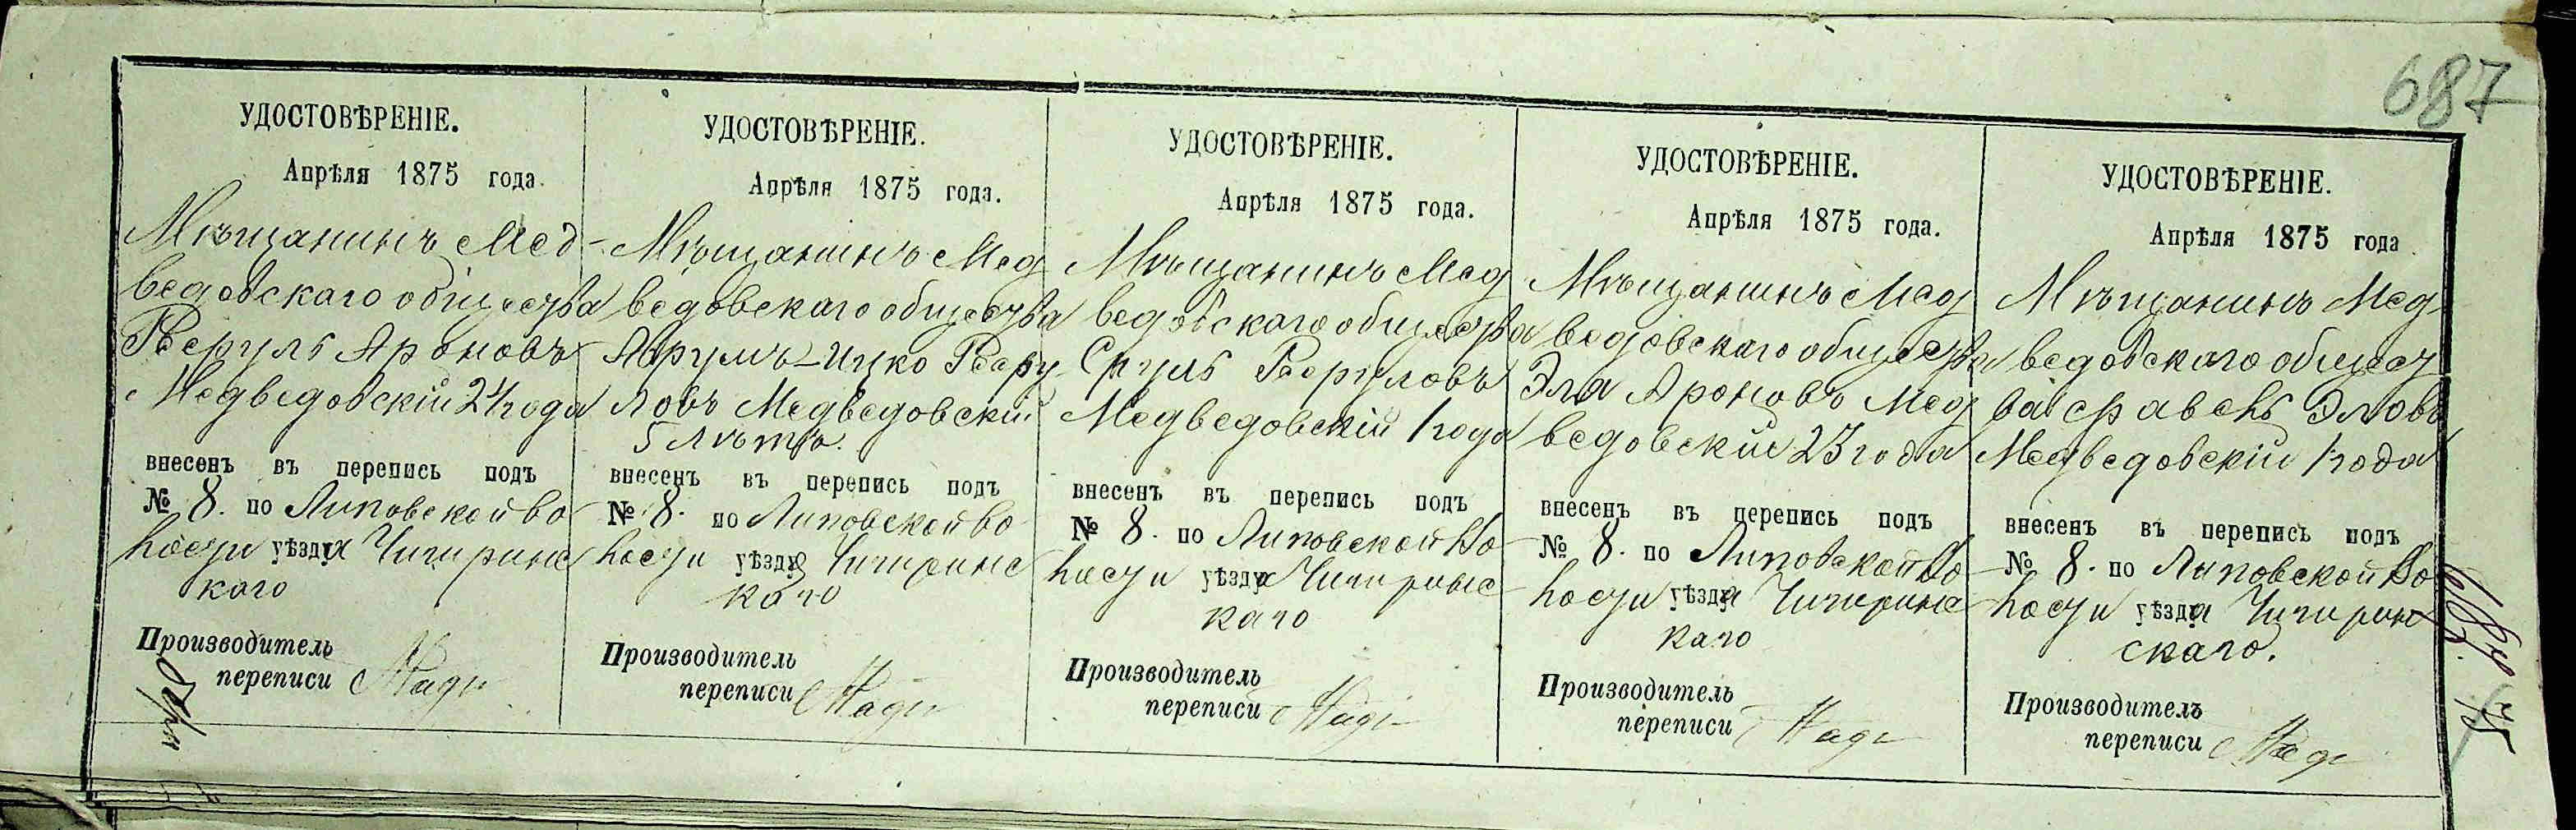 687
УДОСТОВѢРЕНІЕ.
Апрѣля 1875 года.
Мѣщанинъ Мед-
ведовскаго общества
Берулъ Ароновъ
Медведовскій 24 года
внесенъ въ перепись подъ
№ 8. по Липовской во
лости уѣзда Чигиринс
каго
Производитель
переписи
УДОСТОВѢРЕНІЕ.
Апрѣля 1875 года.
Мѣщанинъ Мед
ведовскаго общества
Аврумъ-Ицко Беру
ловъ Медведовскій
5 лѣтъ.
внесенъ въ перепись подъ
№ 8. по Липовской во
лости уѣзда Чигиринс
каго
Производитель
переписи
УДОСТОВѢРЕНІЕ.
Апрѣля 1875 года.
Мѣщанинъ Мед
ведовскаго общества
Сруль Беруловъ
Медведовскій 1 года
внесенъ въ перепись подъ
№ 8. по Липовской во
лости уѣзда Чигиринс
каго
Производитель
переписи
УДОСТОВѢРЕНІЕ.
Апрѣля 1875 года.
Мѣщанинъ Мед
ведовскаго общества
Эля Ароновъ Мед
ведовскій 23 года
внесенъ въ перепись подъ
№ 8. по Липовской во
лости уѣзда Чигиринс
каго
Производитель
переписи
УДОСТОВѢРЕНІЕ.
Апрѣля 1875 года.
Мѣщанинъ Мед-
ведовскаго общест
ва Эловъ
Медведовскій 1 года
внесенъ въ перепись подъ
№ 8. по Липовской во
лости уѣзда Чигирин
скаго.
Производитель
переписи